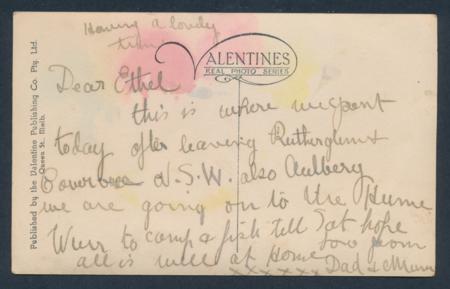 Having a lovely
time
VALENTINES
REAL PHOTO SERIES
Published by the Valentine Publishing Co. Pty. Ltd.
Queen St., Melb.
Dear Ethel
this is where we spent
today after leaving Rutherglen &
N.S.W. also Aulbery
we are going on to the Hume
Wier to camp & fish till Sat hope
all is well at Home love from
xxxxxx Dad & Mum